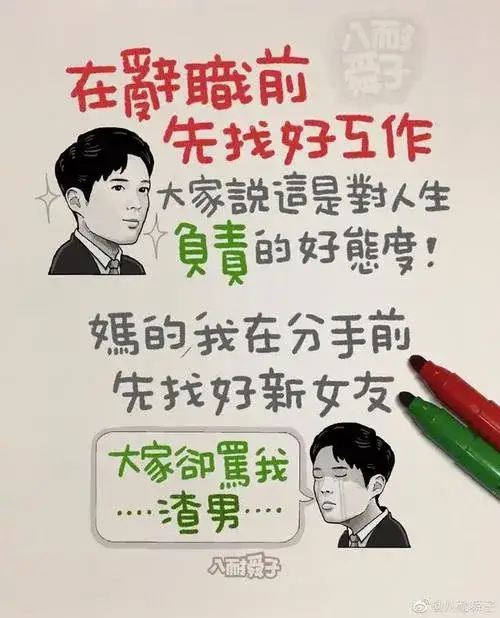 八耐舜子
在辭職前
先找好工作
大家說這是對人生
負責的好態度！
媽的，我在分手前
先找好新女友
大家卻罵我
····渣男····
八耐舜子
@八耐舜子